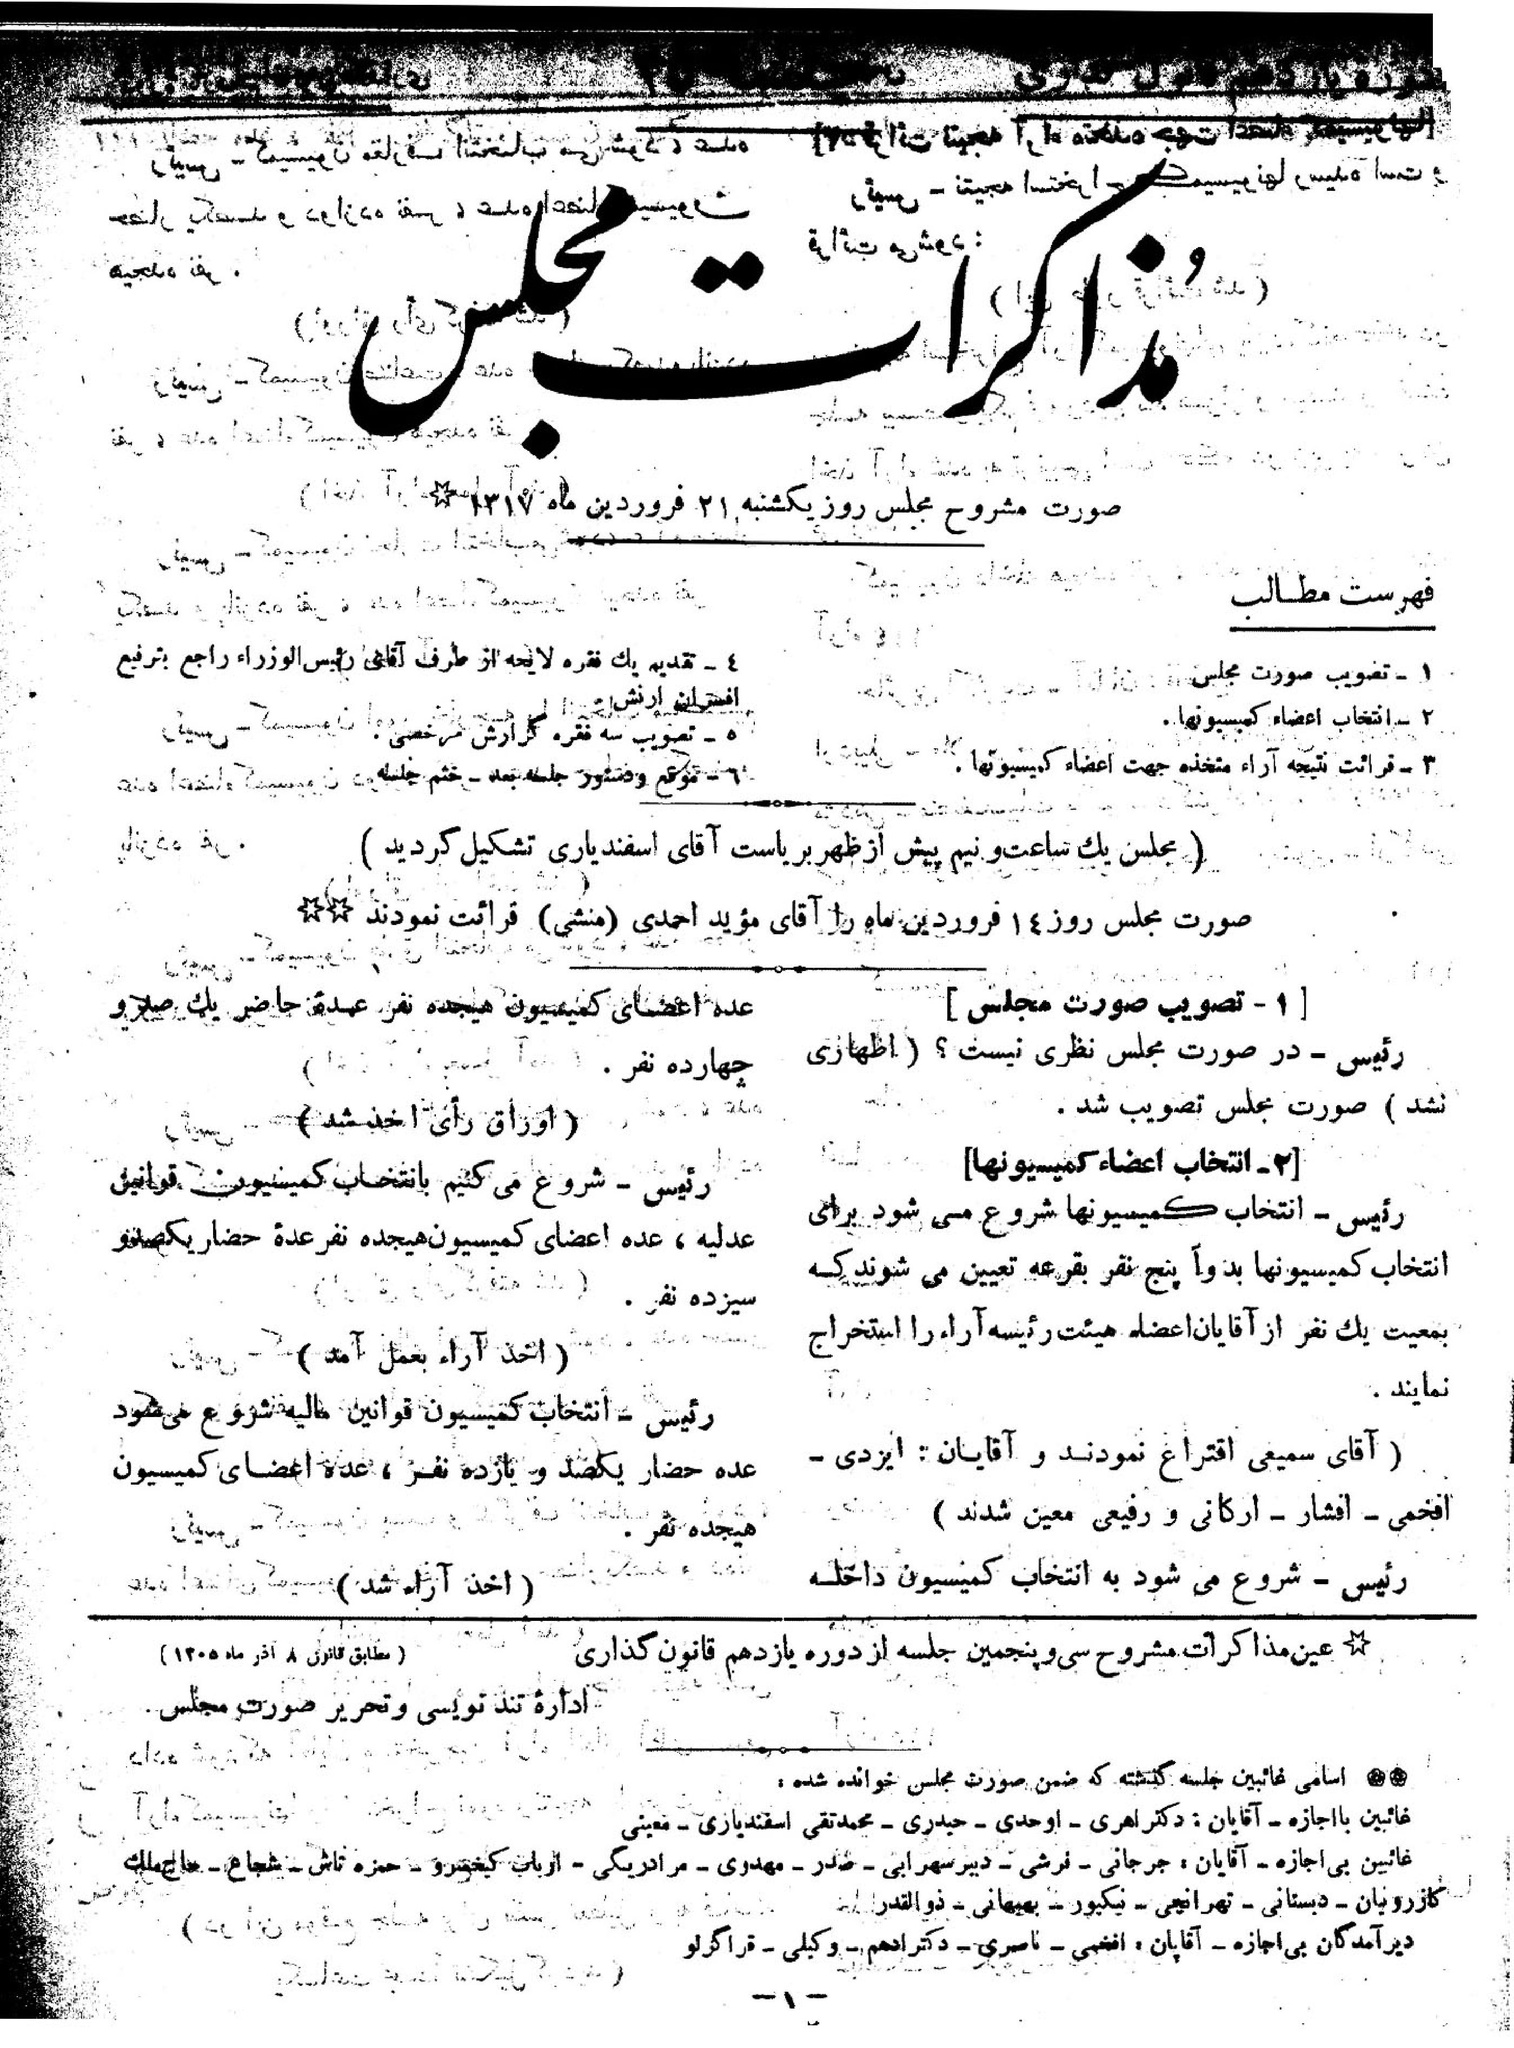 مذاکرات مجلس
صورت مشروح مجلس روز یکشنبه ۲۱ فروردین ماه ۱۳۱۷ ☆
فهرست مطالب
۱ ـ تصویب صورت مجلس
۲ ـ انتخاب اعضاء کمیسیونها .
۳ ـ قرائت نتیجه آراء متخذه جهت اعضاء کمیسیونها .
٤ ـ تقدیم یك فقره لایحه از طرف آقای رئیس‌الوزراء راجع بترفیع
افسران ارتش .
٥ ـ تصویب سه فقره گزارش مرخصی .
٦ ـ موقع و دستور جلسه بعد ـ ختم جلسه
( مجلس یك ساعت و نیم پیش از ظهر بریاست آقای اسفندیاری تشکیل گردید )
صورت مجلس روز ۱٤ فروردین ماه را آقای مؤید احمدی (منشی) قرائت نمودند ☆☆
[ ۱ - تصویب صورت مجلس ]
رئیس ـ در صورت مجلس نظری نیست ؟ ( اظهاری
نشد ) صورت مجلس تصویب شد .
[۲ـ انتخاب اعضاء کمیسیونها]
رئیس ـ انتخاب کمیسیونها شروع می شود برای
انتخاب کمیسیونها بدواً پنج نفر بقرعه تعیین می شوند که
بمعیت یك نفر از آقایان اعضاء هیئت رئیسه آراء را استخراج
نمایند .
( آقای سمیعی اقتراع نمودند و آقایان : ایزدی ـ
افخمی ـ افشار ـ ارکانی و رفیعی معین شدند )
رئیس ـ شروع می شود به انتخاب کمیسیون داخله
عده اعضای کمیسیون هیجده نفر عدهٔ حاضر یك صد و
چهارده نفر .
( اوراق رأی اخذ شد )
رئیس ـ شروع می کنیم بانتخاب کمیسیون قوانین
عدلیه ، عده اعضای کمیسیون هیجده نفر عدهٔ حضار یکصدو
سیزده نفر .
( اخذ آراء بعمل آمد )
رئیس ـ انتخاب کمیسیون قوانین مالیه شروع می‌شود
عده حضار یکصد و یازده نفر ، عده اعضای کمیسیون
هیجده نفر .
( اخذ آراء شد )
☆ عین مذاکرات مشروح سی و پنجمین جلسه از دوره یازدهم قانون گذاری
( مطابق قانون ۸ آذر ماه ۱۳۰۵ )
ادارهٔ تند نویسی و تحریر صورت مجلس
❀❀ اسامی غائبین جلسه گذشته که ضمن صورت مجلس خوانده شده :
غائبین بااجازه ـ آقایان : دکتر اهری ـ اوحدی ـ حیدری ـ محمدتقی اسفندیاری ـ معینی
غائبین بی‌اجازه ـ آقایان : جرجانی ـ فرشی ـ دبیرسهرابی ـ صدر ـ مهدوی ـ مرادریگی ـ ارباب کیخسرو ـ حمزه تاش ـ شجاع ـ حاج‌ملك
کازرونیان ـ دبستانی ـ تهرانچی ـ نیکپور ـ بهبهانی ـ ذوالقدر
دیرآمدگان بی‌اجازه ـ آقایان : افخمی ـ ناصری ـ دکتر ادهم ـ وکیلی ـ قراگزلو
ـ ۱ ـ